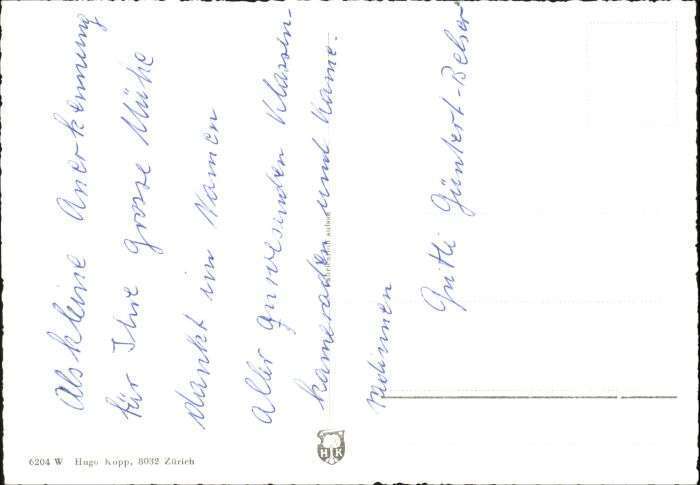 Als kleine Anerkennung
für Ihre grosse Mühe
dankt im Namen
aller anwesenden Klassen-
kameraden und Kame-
radinnen
Güntert-Belser
6204 W Hugo Kopp, 8032 Zürich
H K